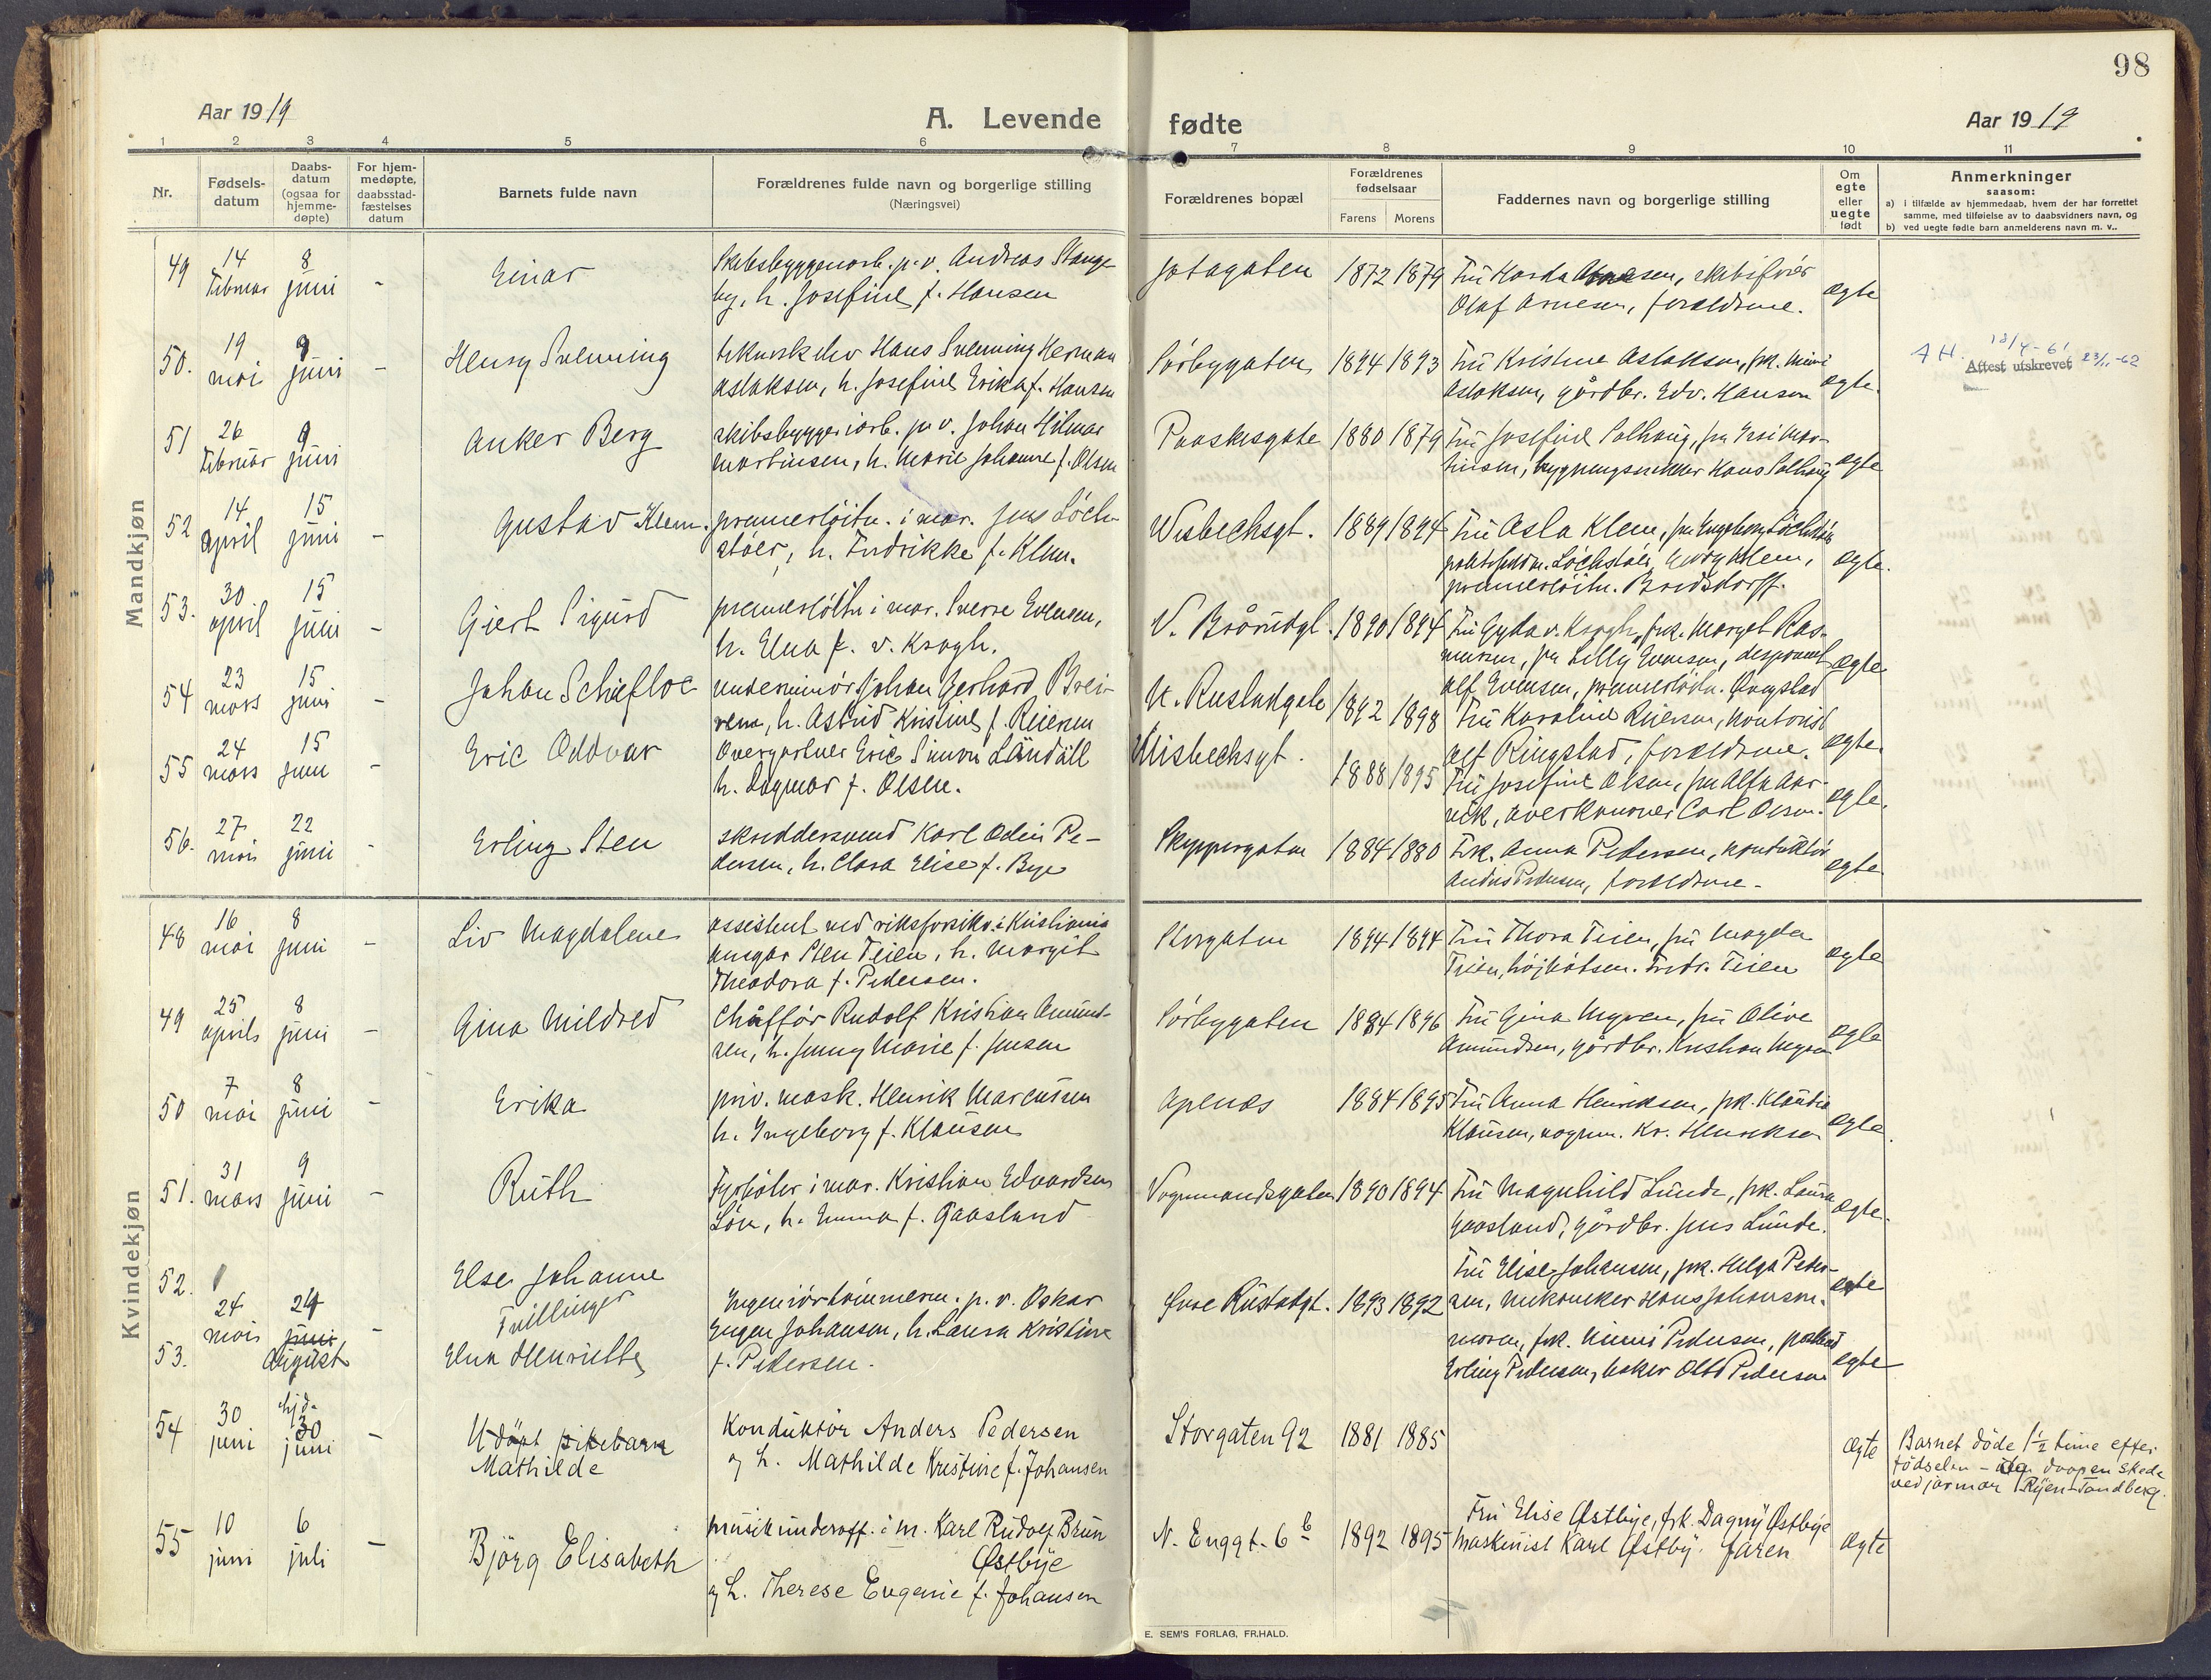 98
Aar 1919
A. Levende fødte
Aar 1919
1 2 3 4 5 6 7 8 9 10 11
Nr.
Fødsels-
datum
Daabs-
datum
(ogsaa for
hjemme-
døpte)
For hjem-
medøpte,
daabsstad-
fæstelses
datum
Barnets fulde navn
Forældrenes fulde navn og borgerlige stilling
(Næringsvei)
Forældrenes bopæl
Forældrenes
fødselsaar
Farens Morens
Faddernes navn og borgerlige stilling
Om
egte
eller
uegte
født
Anmerkninger
saasom:
a) i tilfælde av hjemmedaab, hvem der har forrettet
samme, med tilføielse av to daabsvidners navn, og
b) ved uegte fødte barn anmelderens navn m. v..
Mandkjøn
49
14
Februar
8
juni
-
Einar
Skibsbyggeriarb. p. v. Andreas Stange-
by, h. Josefine f. Hansen
Gøtagaten
1872 1879
Fru Harda Arnesen, skibsfører
Olaf Arnesen, forældrene.
egte
50.
19
mai
9
juni
-
Henry Svenning
Hans Svenning Herman
Aslaksen, h. Josefine Erika f. Hansen
Sörbygaten
1894 1893
Fru Kristine Aslaksen, frk. Mimi
Aslaksen, gårdbr. Edv. Hansen
egte.
AH. 18/4-61
Attest utskrevet 23/11-62
51
26
Februar
9
juni
Anker Berg
skibsbyggeriarb. p. v. Johan Hilmar
Martinsen, h. Marie Johanne f. Olsen
Paaskesgate
1880 1879
Fru Josefine Solhaug, fru Mar-
tinsen, Hans Solhaug
egte
52
14
april
15
juni
-
Gustav Klem.
premierlöitn. i mar. Jens Löch-
stöer, h. Fredrikke f. Klem.
Wisbechsgt.
1889 1894
Fru Asla Klem, fru Ingeborg Löchstöer
Löchstöer, Klem,
premierlöitn. Bredsdorff.
egte.
53.
30
april
15
juni
-
Gjert Sigurd
premierlöitn i mar. Sverre Evensen,
h. Elna f. v. Krogh.
1890 1894
Fru Gyda v. Krogh, frk. Margot Ras-
mussen, fru Lilly Evensen,
Alf Evensen, premierlöitn. Ringstad
egte
54
23
mars
15
juni
-
Johan Schiefloe
underminör Johan Gerhard Brei-
rem, h. Astrid Kristine f. Reiersen
N. Rustadgate
1892 1898
Fru Karoline Reiersen, kontorist
Alf Ringstad, forældrene.
egte.
55
24
mars
15
juni
-
Eric Oddvar
Overgartner Eric Simon Ländäll
h. Dagmar f. Olsen.
Wisbechsgt.
1888 1895
Fru Josefine Olsen, fru Alfa Aar-
vik, Carl Olsen.
egte.
56.
27
mai
22
juni
-
Erling Sten
skræddersvend Karl Odin Pe-
dersen, h. Clara Elise f. Bye
Skyppergaten
1884 1880
Frk. Anna Pedersen, konduktör
Anders Pedersen, forældrene.
egte
Kvindekjøn
48
16
mai
8
juni
-
Liv Magdalene
assistent ved riksforsikr. i Kristiania
Ansgar Sten Teien, h. Margit
Theodora f. Pedersen.
Storgaten
1894 1894
Fru Thora Teien, fru Magda
Teien, Fredr. Teien
egte
49
25
april
8
juni
-
Gina Mildred
Chäfför Rudolf Kristian Amund-
sen, h. Jenny Marie f. Jensen
Sörbygaten
1884 1896
Fru Gina Myren, fru Olive
Amundsen, gårdbr. Kristian Myren
egte
50
7
mai
8
juni
-
Erika
priv. mask. Henrik Marcussen
h. Ingeborg f. Klausen
Apenæs
1884 1895
Fru Anna Henriksen, frk. Klaudia
Klausen, vognm. Kr. Henriksen
egte.
51.
31
mars
9
juni
-
Ruth
Fyrböter i mar. Kristian Edvardsen
Löre, h. Emma f. Gaasland
Vognmandsgaten
1890 1894
Fru Magnhild Lunde, frk. Laura
Gaasland, gårdbr. Jens Lunde.
egte.
52.
24
mai
24
juni
August
-
Else Johanne
Tvillinger
Ingeniörtömmerm. p. v. Oskar
Eugen Johansen, h. Laura Kristine
f. Pedersen.
Övre Rustadgt.
1893 1892
Fru Elise Johansen, frk. Helga Peder-
sen, mekaniker Hans Johansen.
egte
53.
Elna Henriette
moren, frk. Mimi Pedersen, postbud
Erling Pedersen, Otto Pedersen
egte
54
30
juni
hjd.
30
juni
-
Udöpt pikebarn
Mathilde
Konduktör Anders Pedersen
og h. Mathilde Kristine f. Johansen
Storgaten 92
1881 1885
egte
Barnet döde 1½ time efter
födselen - daapen skede
ved jormor Ryen-Tandberg.
55
10
juni
6
juli
-
Björg Elisabeth
musikunderoff. i m. Karl Rudolf Brun
Østbye
og h. Therese Eugenie f. Johansen
N. Enggt. 6 b
1892 1895
Fru Elise Østbye, frk. Dagny Østbye
Maskinist Karl Østby. faren
egte
E. SEM'S FORLAG, FR.HALD.